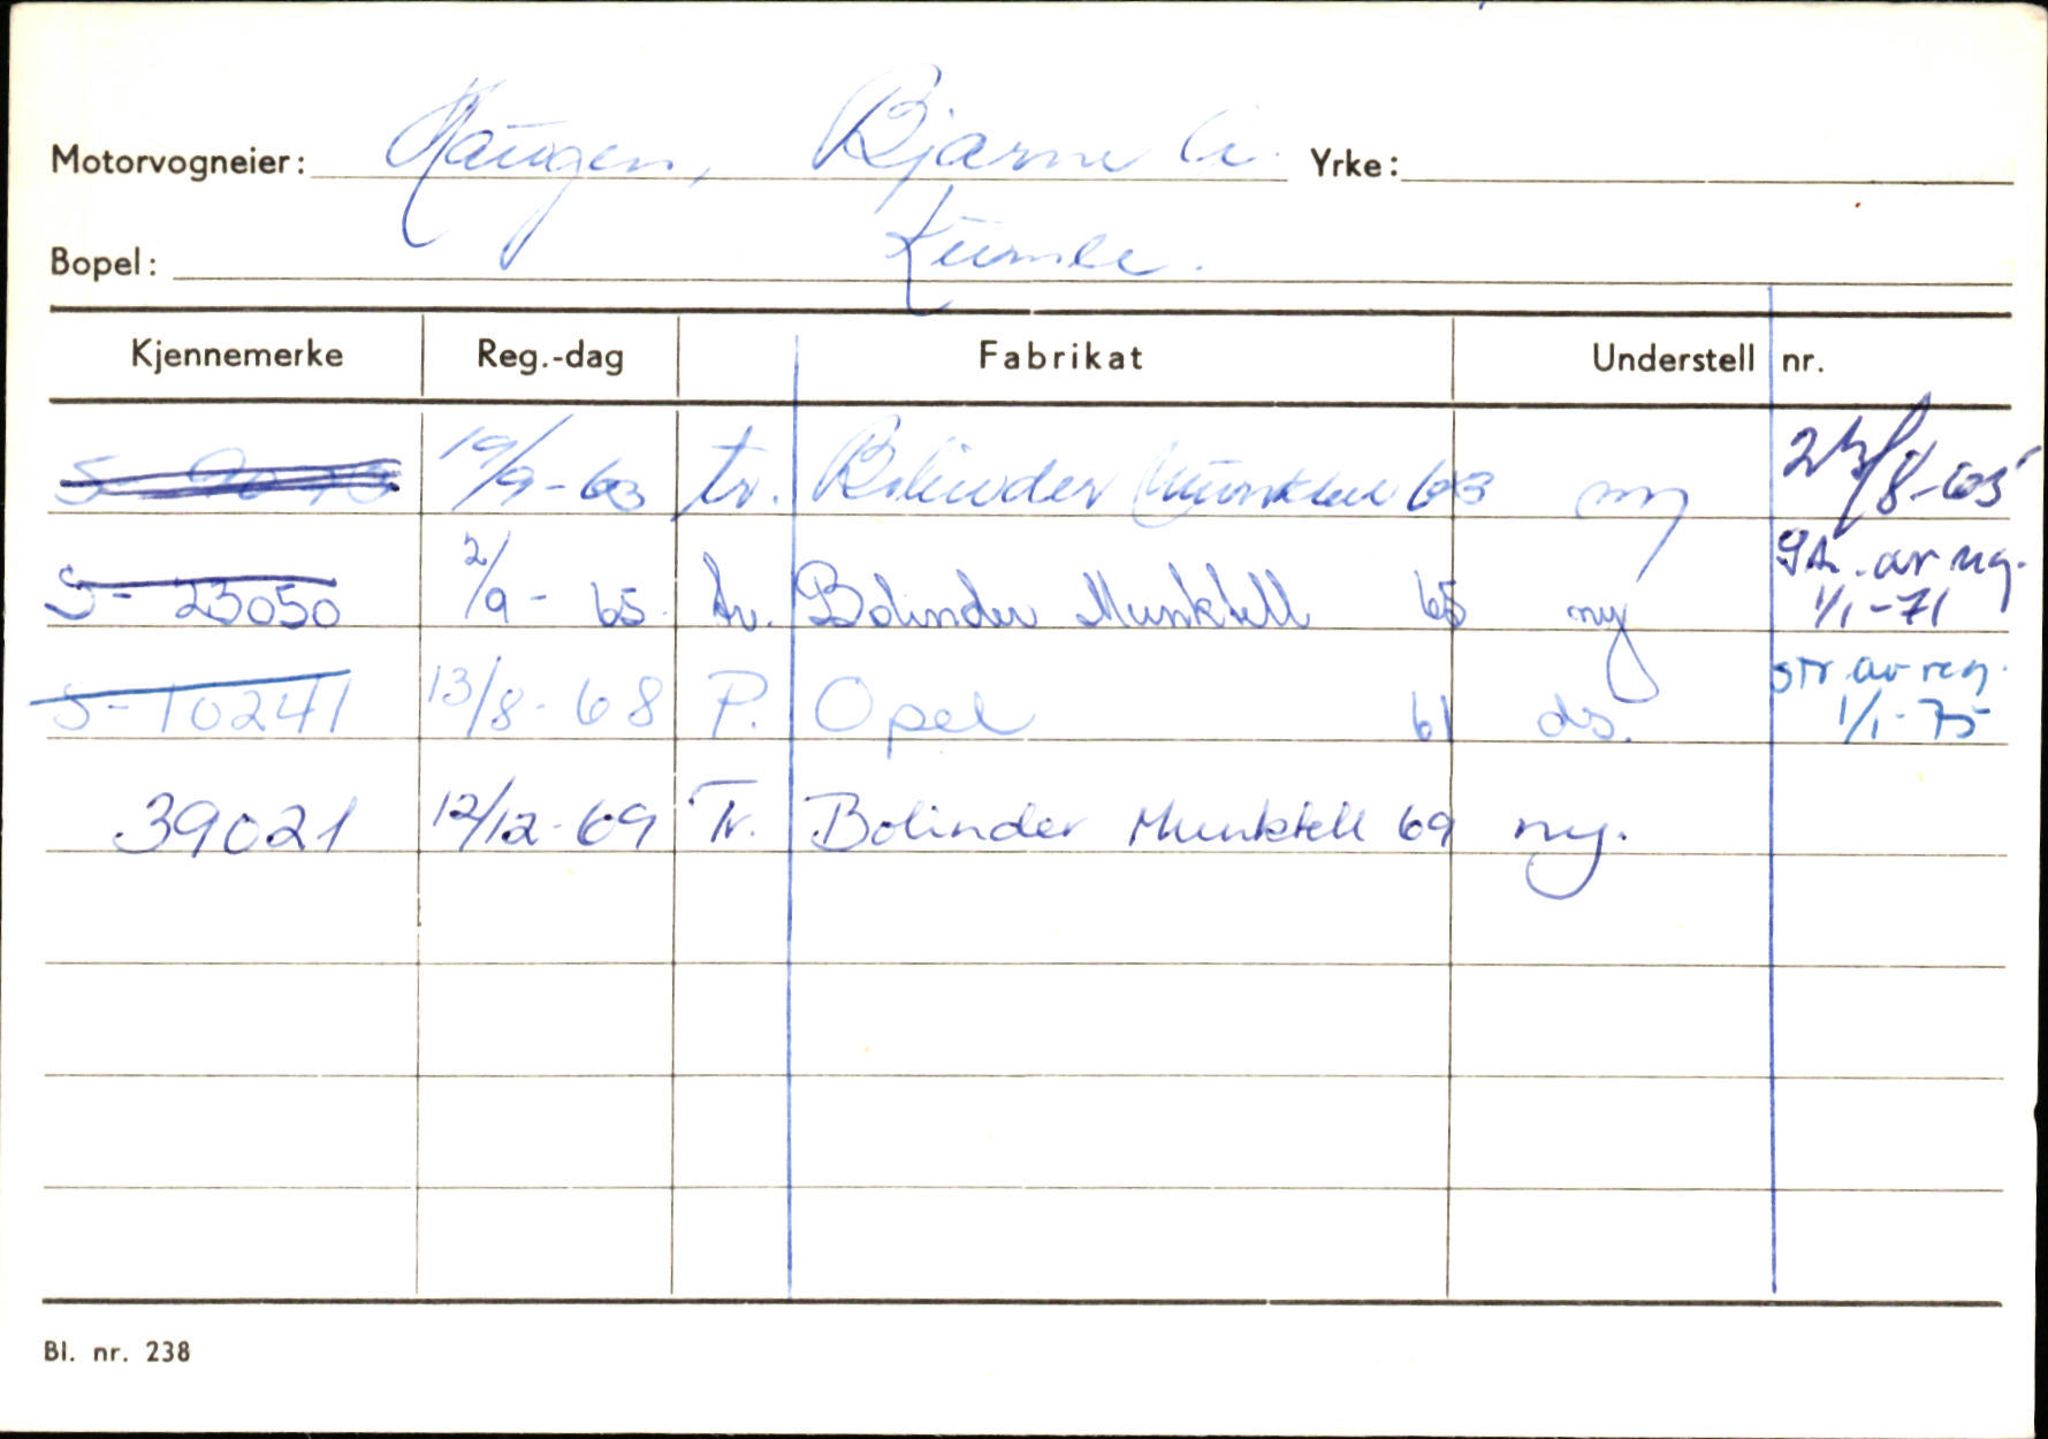 Motorvogneier: Haugen, Bjarne Yrke:
Bopel:
Kjennemerke Reg.-dag Fabrikat Understell nr.
S- 19/9-63 tr. Bolinder Munktell 63 ny 23/8-65
S-23050 2/9-65 tr. Bolinder Munktell 65 ny str. av reg. 1/1-71
S-10241 13/8-68 P. Opel 61 ds. str av reg. 1/1-75
39021 12/12-69 Tr. Bolinder Munktell 69 ny.
Bl. nr. 238